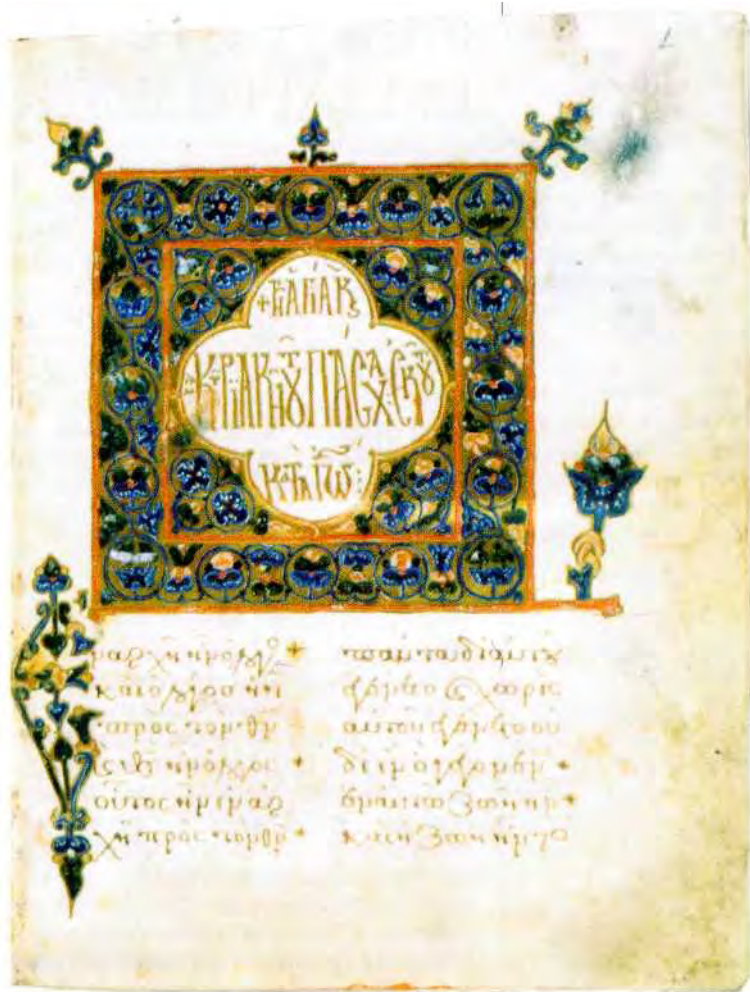 + ΤΗ ΑΓΙΑ Κ
ΚΡΙΑΚΗ ΤΟΥ ΠΑΣΧΑ: ΕΚ ΤΟΥ
ΚΑΤΑ ΙΩ:
ν αρχη ην ο λογο +
και ο λογος ην
προς τον θν
κ θς ην ο λογος +
ουτος ην εν αρ
χη προς τον θν +
παντα δι αυτου
εγενετο κ χωρις
αυτου εγενετο ου
δε εν ο γεγονεν +
εν αυτω ζωη ην +
και η ζωη ην το